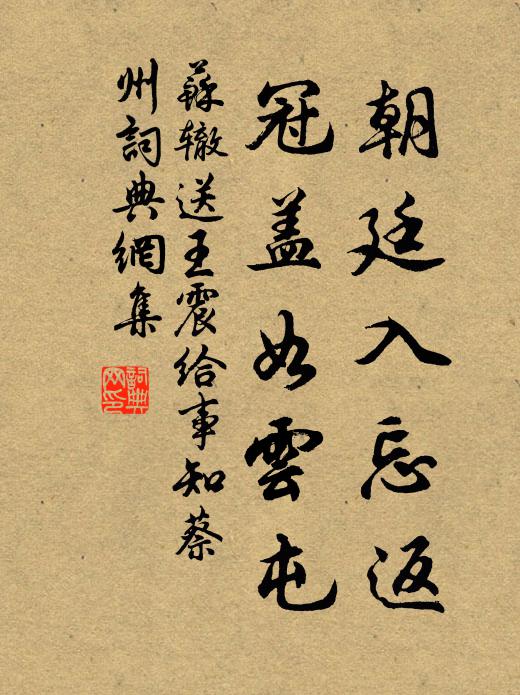 朝廷入忘返
冠盖如雲屯
蘇辙送王震给事知蔡
州詞典網集
詞典网印